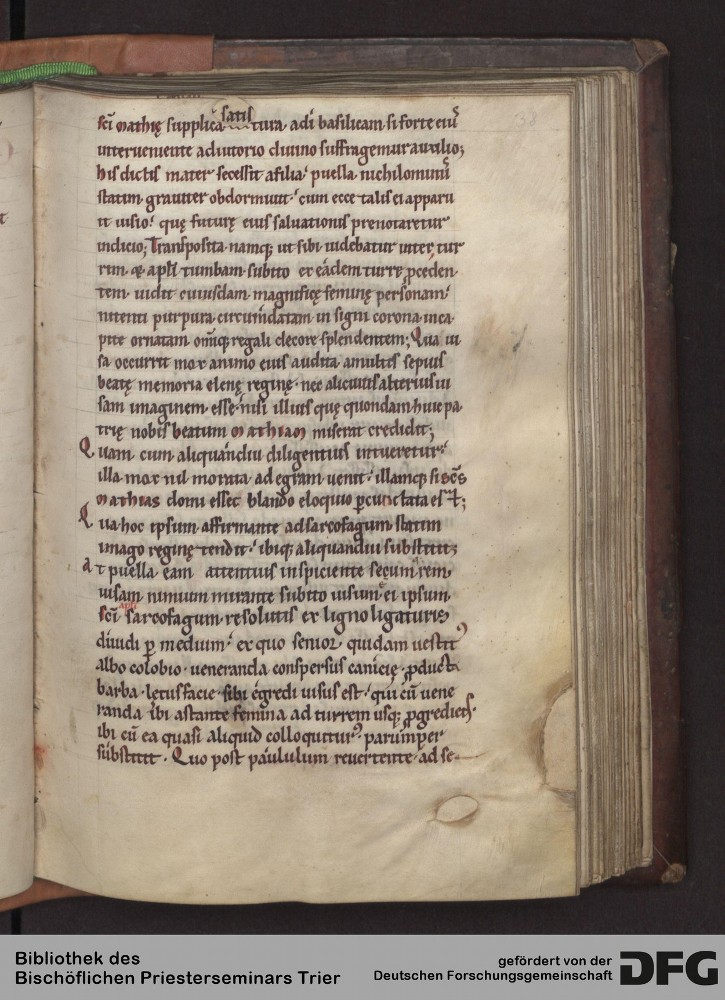 sc̄i mathię supplicaᷤ satis tura· adi basilicam· si forte eiꝰ
interueniente adiutorio diuino suffragemur auxilio;
his dictis mater secessit afilia· puella nichilominꝰ
statim grauiter obdormiuit· cum ecce talis ei apparu
it uisio· quę futurę eius saluationis prenotaretur
indicio; Transposita namq; ut sibi uidebatur inter tur
rim & apl̄i tumbam· subito ex eadem turre ꝓceden
tem uidit cuiusdam magnificę feminę personam·
nitenti purpura circumdatam insigni corona inca
pite ornatam om̄iq; regali decore splendentem; Qua ui
sa occurrit mox animo eius audita amultis sepius
beatę memoria elenę reginę· nec alicuius alterius ui
sam imaginem esse· nisi illius quę quondam huic pa
trię nobis beatum mathiam miserat credidit;
Quam cum aliquandiu diligentius intueretur·
illa mox nil morata ad egram uenit· illamq; si sc̄s
mathias domi esset blando eloquio ꝑcunctata est;
Qua hoc ipsum affirmante ad sarcofagum statim
imago reginę tendit· ibiq; aliquandiu substitit;
At puella eam attentius inspiciente secum rem
uisam nimium mirante subito uisum ē ei ipsum
sc̄i apl̄i sarcofagum resolutis ex ligno ligaturis
diuidi ꝑ medium· ex quo senior quidam uestitꝰ
albo colobio· ueneranda conspersus canicię· ꝓducta
barba· lętus facie· sibi egredi uisus est· qui cū uene
randa ibi astante femina ad turrem usq; ꝓgrediens·
ibi cū ea quasi aliquid colloquitur· parumper
substitit· Quo post paululum reuertente ad se
Bibliothek des
Bischöflichen Priesterseminars Trier
gefördert von der
Deutschen Forschungsgemeinschaft
DFG